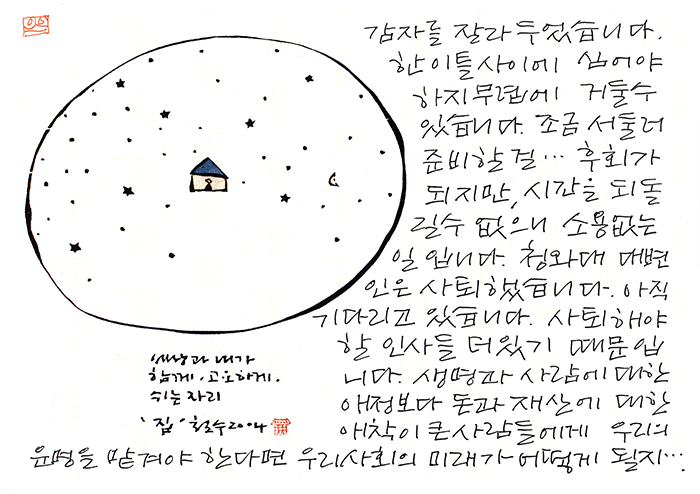 감자를 잘라 두었습니다.
한 이틀 사이에 심어야
하지 무렵에 거둘수
있습니다. 조금 서둘러
준비할 걸… 후회가
되지만, 시간을 되돌
릴수 없으니 소용없는
일 입니다. 청와대 대변
인은 사퇴했습니다. 아직
기다리고 있습니다. 사퇴해야
할 인사들 더있기 때문입
니다. 생명과 사람에 대한
애정보다 돈과 재산에 대한
애착이 큰사람들에게 우리의
운명을 맡겨야 한다면 우리사회의 미래가 어떻게 될지…
세상과 내가
함께. 고요하게.
쉬는 자리
'집' 철수 2004